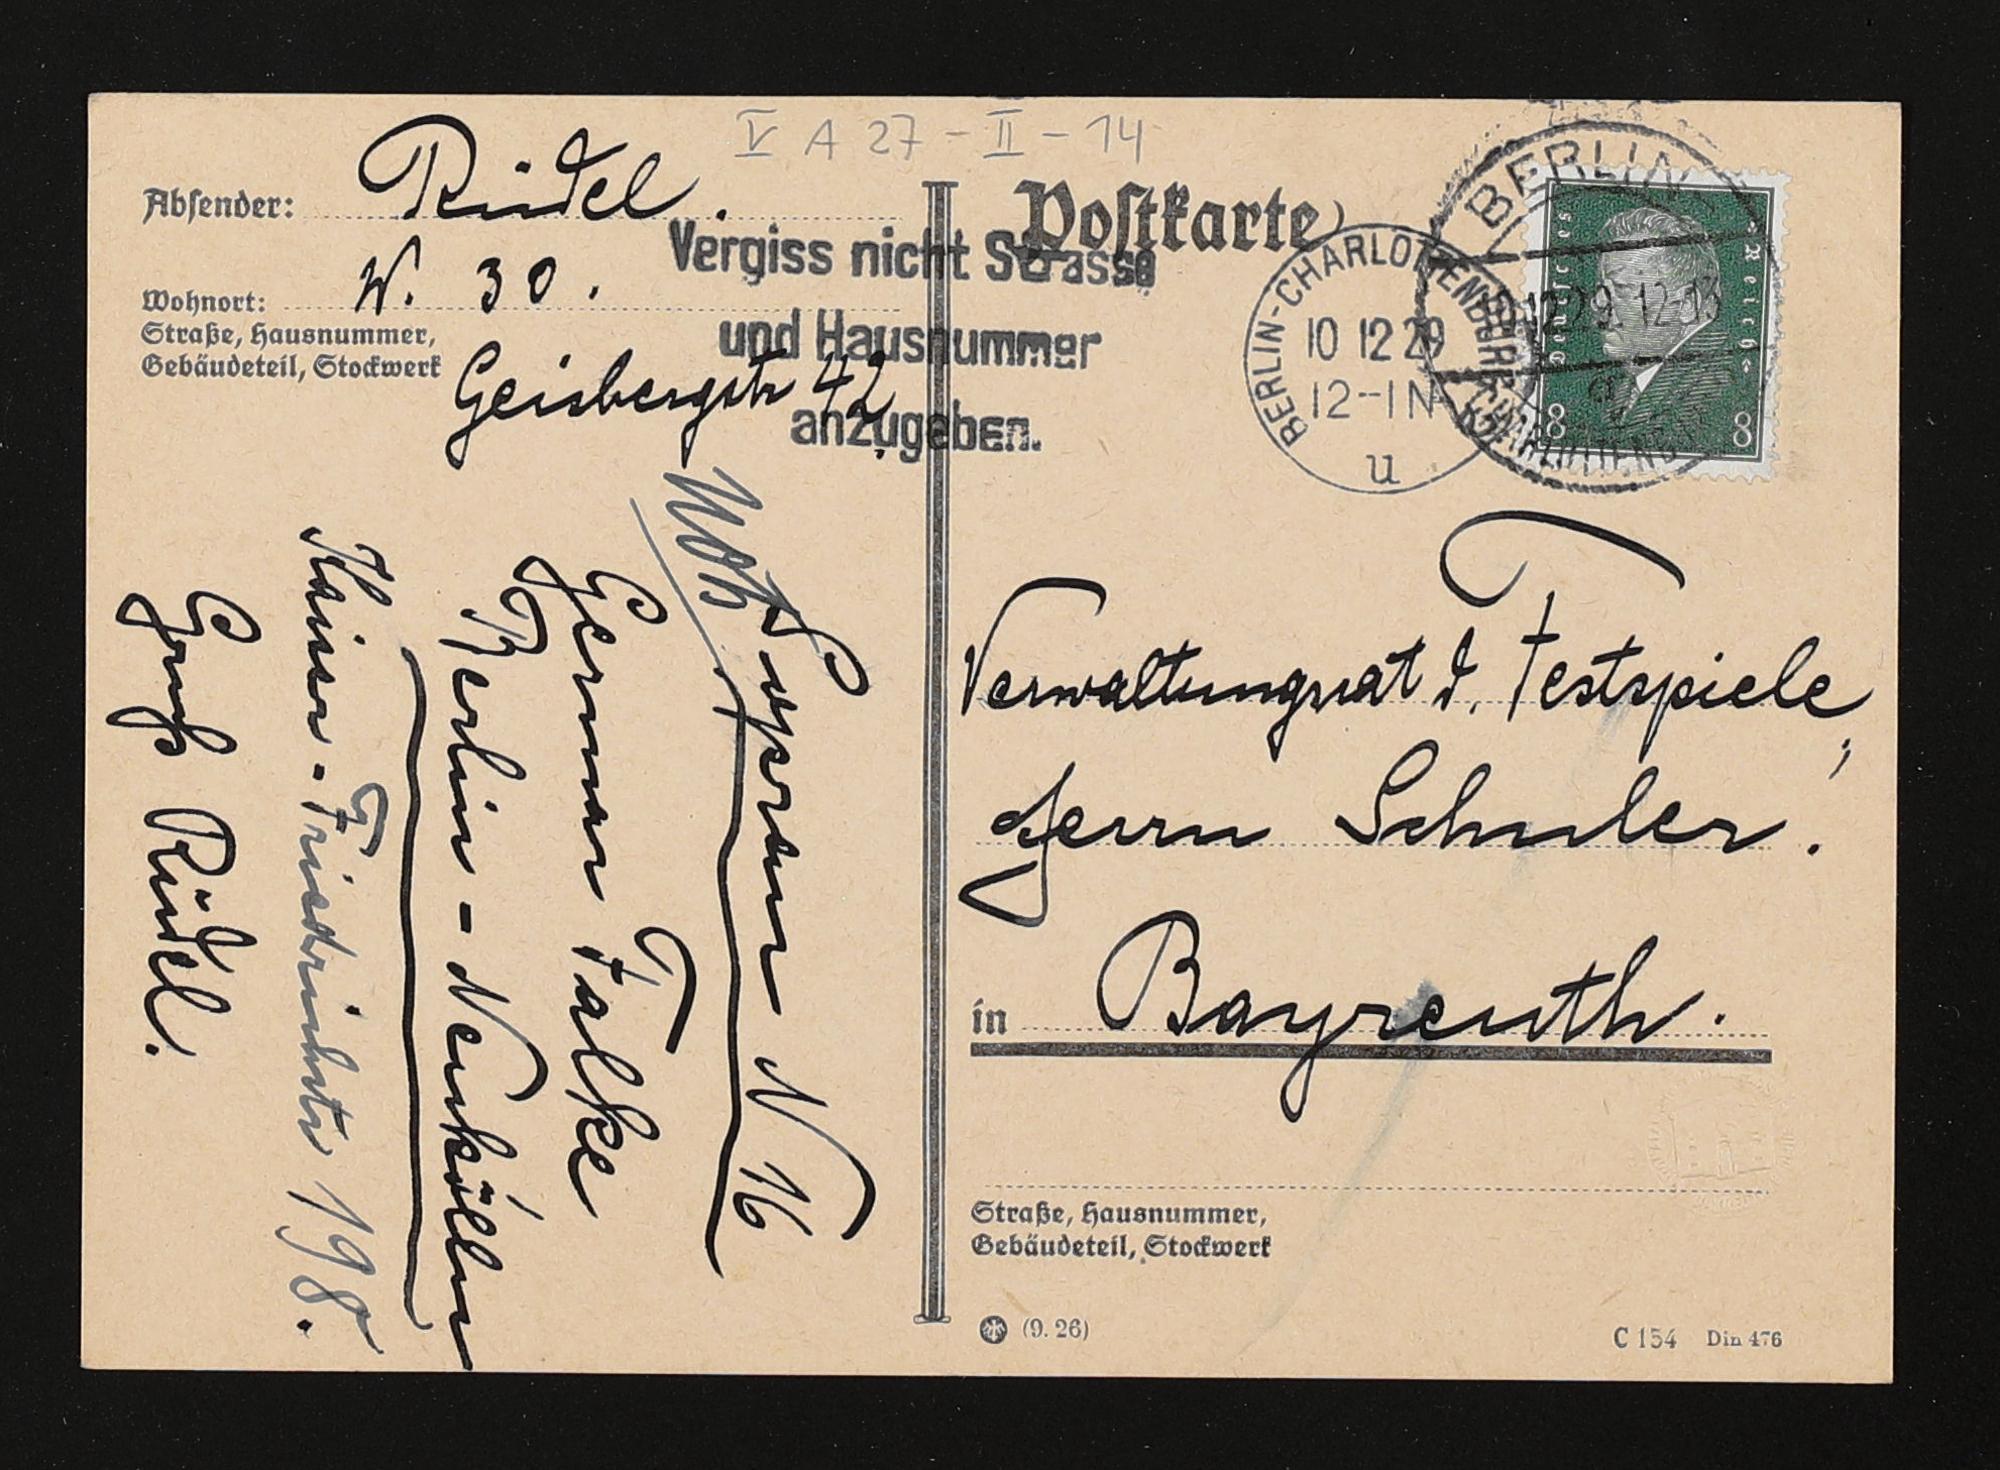 V A 27 - II - 14
Absender: Rüdel.
Wohnort: W. 30.
Straße, Hausnummer,
Gebäudeteil, Stockwerk
Geisbergstr 42
Vergiss nicht Strasse
und Hausnummer
anzugeben.
Postkarte
BERLIN-CHARLOTTENBURG
10 12 29
12-1 N
u
BERLIN
12.29. 12-13
CHARLOTTENBURG
Deutsches Reich
8 8
Verwaltungsrat d. Festspiele,
Herrn Schuler.
in Bayreuth.
Straße, Hausnummer,
Gebäudeteil, Stockwerk
(9. 26)
C 154 Din 476
Sopran N 16
German Falke
Berlin-Neukölln
Kaiser-Friedrichstr 198.
Gruß Rüdel.